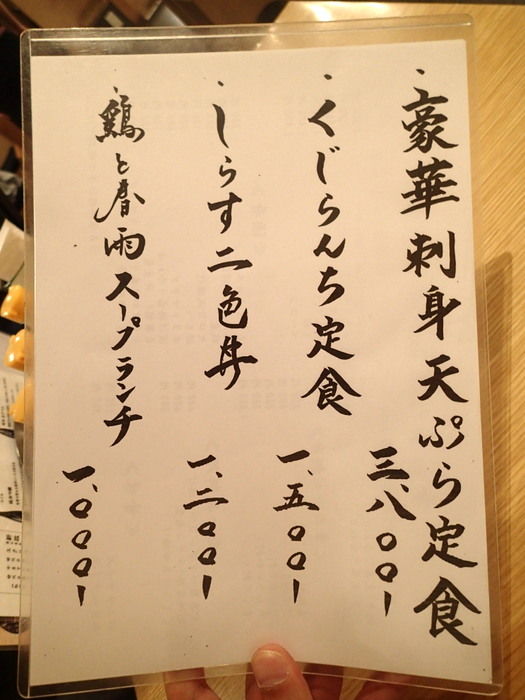 ・豪華刺身天ぷら定食
三、八〇〇ー
・くじらんち定食
一、五〇〇ー
・しらす二色丼
一、二〇〇ー
・鶏と春雨スープランチ
一、〇〇〇ー